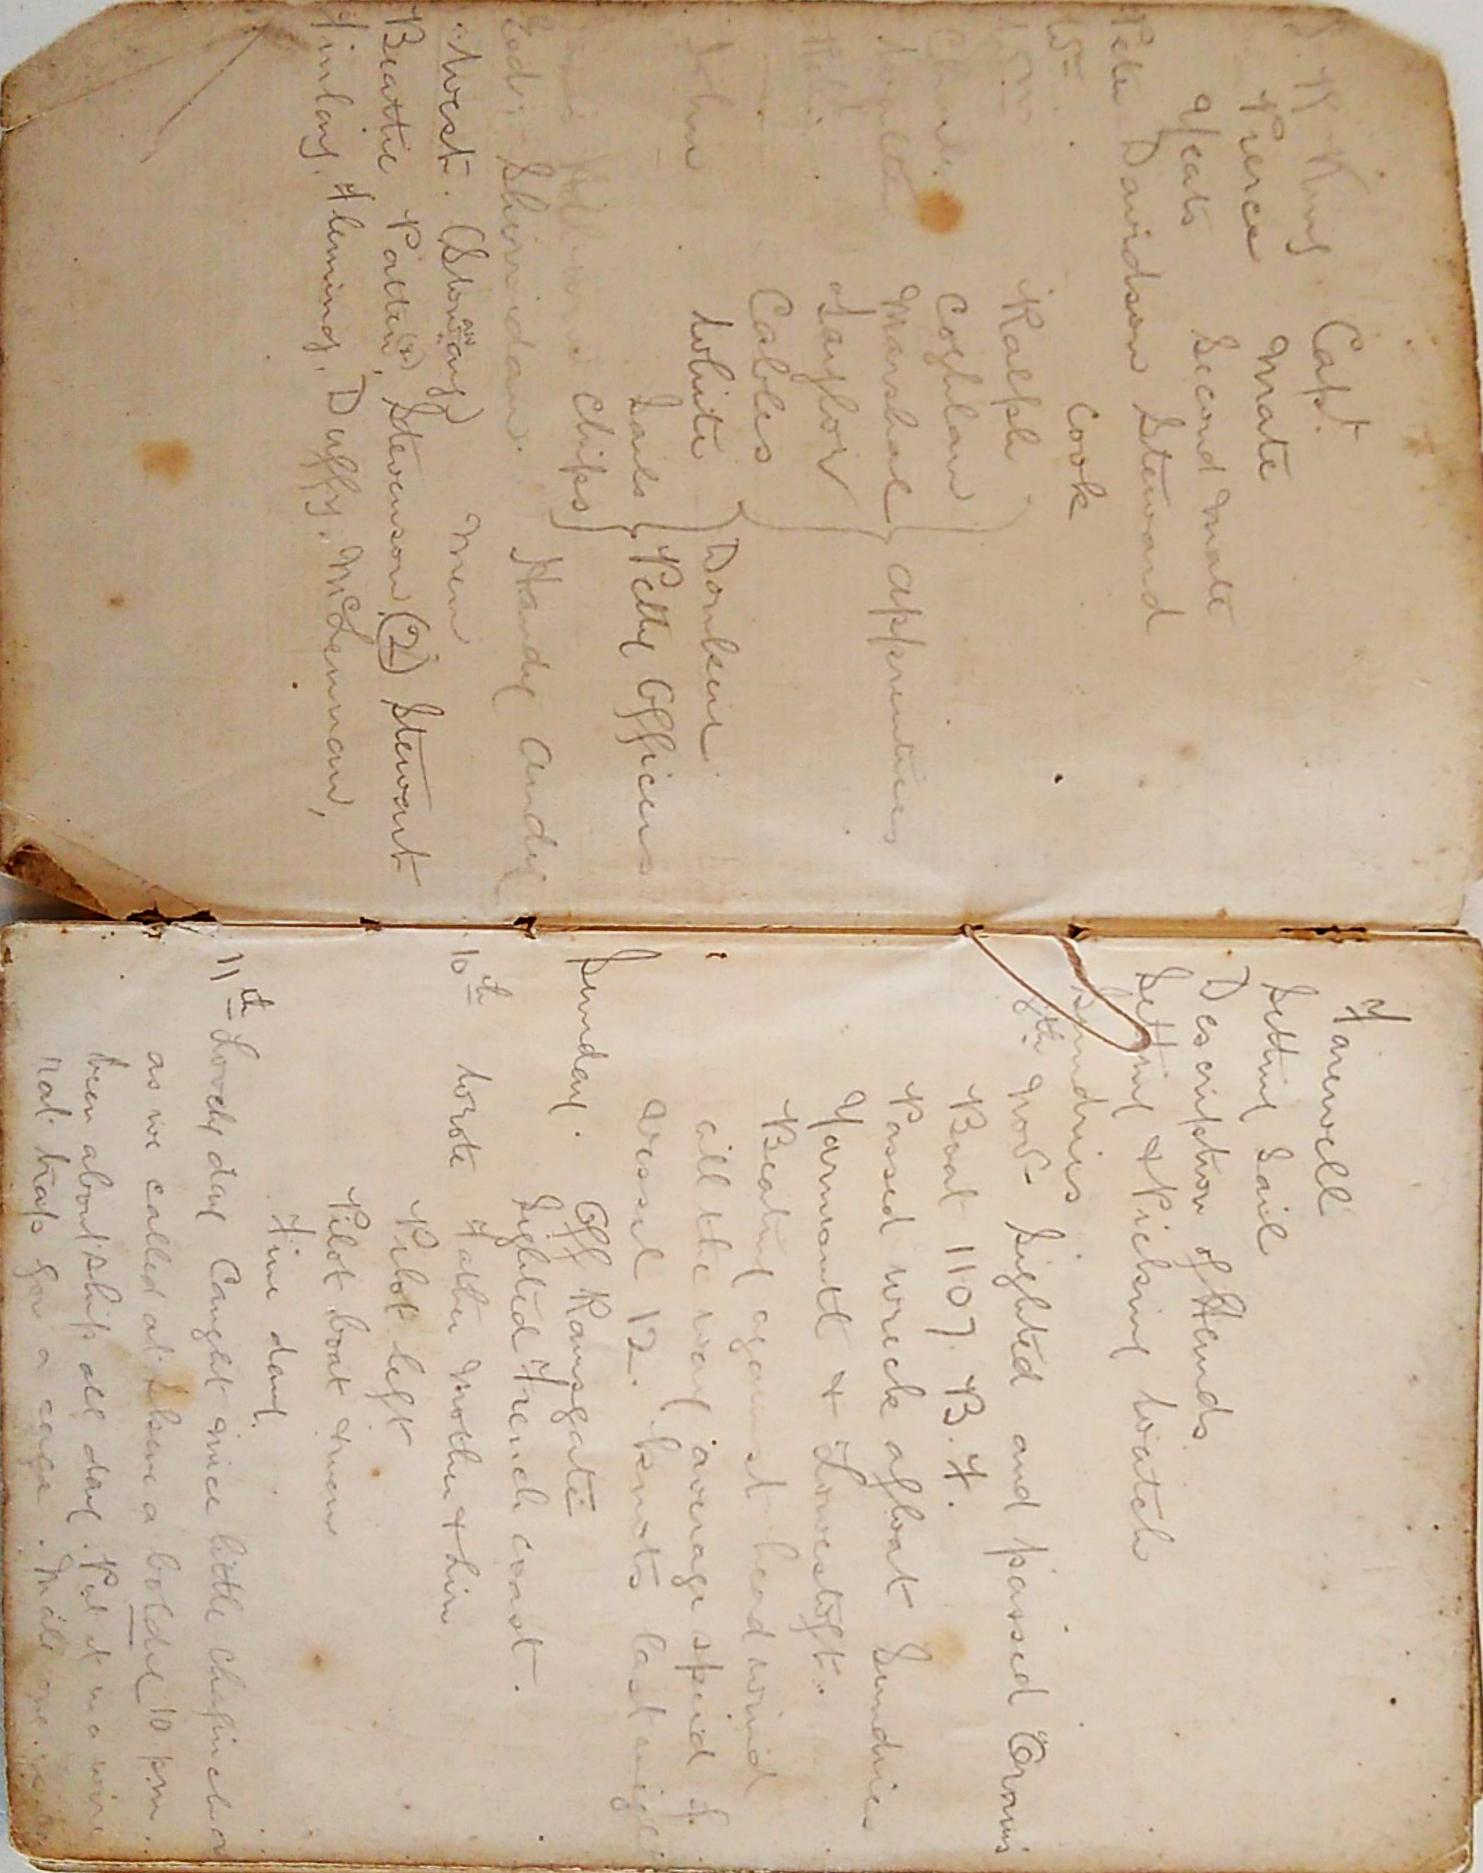 J. R. King Capt.
Pierce Mate
Yeats Second Mate
Peter Davidson Steward
Wm. Cook
Ralph
Charlie Coghlan
Marshall } apprentices
Taylor
Cables
John White } Donkey
Sails } Petty Officers
Chips
Sheridan. Handy Andy
West. (Stowaway) Men
Beattie, Patten, Stevenson (2) Stewart
Finlay, Fleming, Duffy, McLennan,
Farewell
Setting Sail
Description of Hands
Setting & Picking Watch
Sundries
9th Nov. Sighted and passed Evans
Boat 1107. B.F.
Passed wreck afloat Sundries
Yarmouth & Lowestoft.
Beating against head wind
all the way average speed of
vessel 12. knots last night
Sunday. Off Ramsgate
Sighted French coast.
10th Wrote Father Mother & Lin
Pilot left
Pilot boat & men
Fine day.
11th Lovely day Caught nice little chafincho
as we called at Skene a boldie 10 pm.
been about ship all day. Put it in a wire
rat trap for a cage. Made one